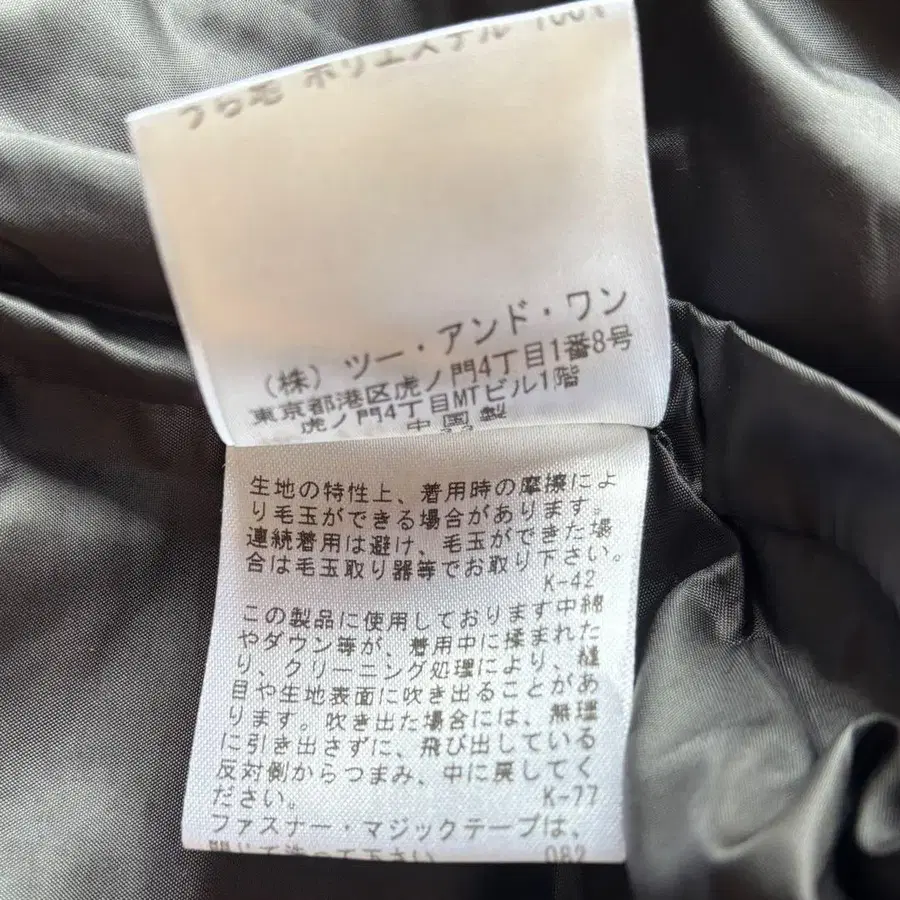 うら地 ポリエステル 100%
(株) ツー・アンド・ワン
東京都港区虎ノ門4丁目1番8号
虎ノ門4丁目MTビル1階
中国製
生地の特性上、着用時の摩擦によ
り毛玉ができる場合があります。
連続着用は避け、毛玉ができた場
合は毛玉取り器等でお取り下さい。
K-42
この製品に使用しております中綿
やダウン等が、着用中に揉まれた
り、クリーニング処理により、縫
目や生地表面に吹き出ることがあ
ります。吹き出た場合には、無理
に引き出さずに、飛び出している
反対側からつまみ、中に戻してく
ださい。 K-77
ファスナー・マジックテープは、
閉じて洗って下さい 082